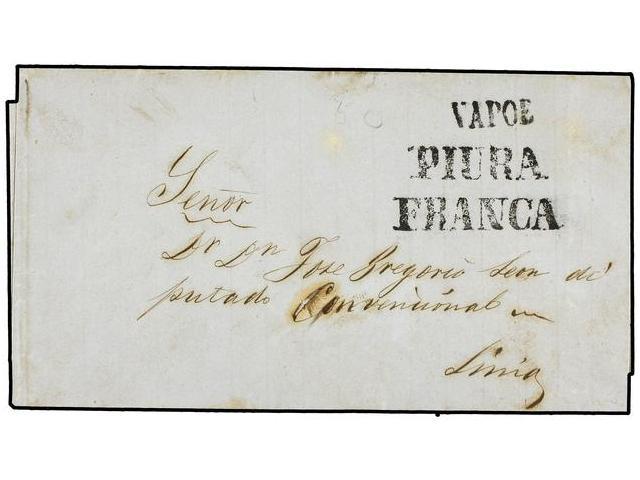 VAPOE
PIURA
FRANCA
Señor
Dr Dn Jose Gregorio Leon di
putado Convencional
Lima